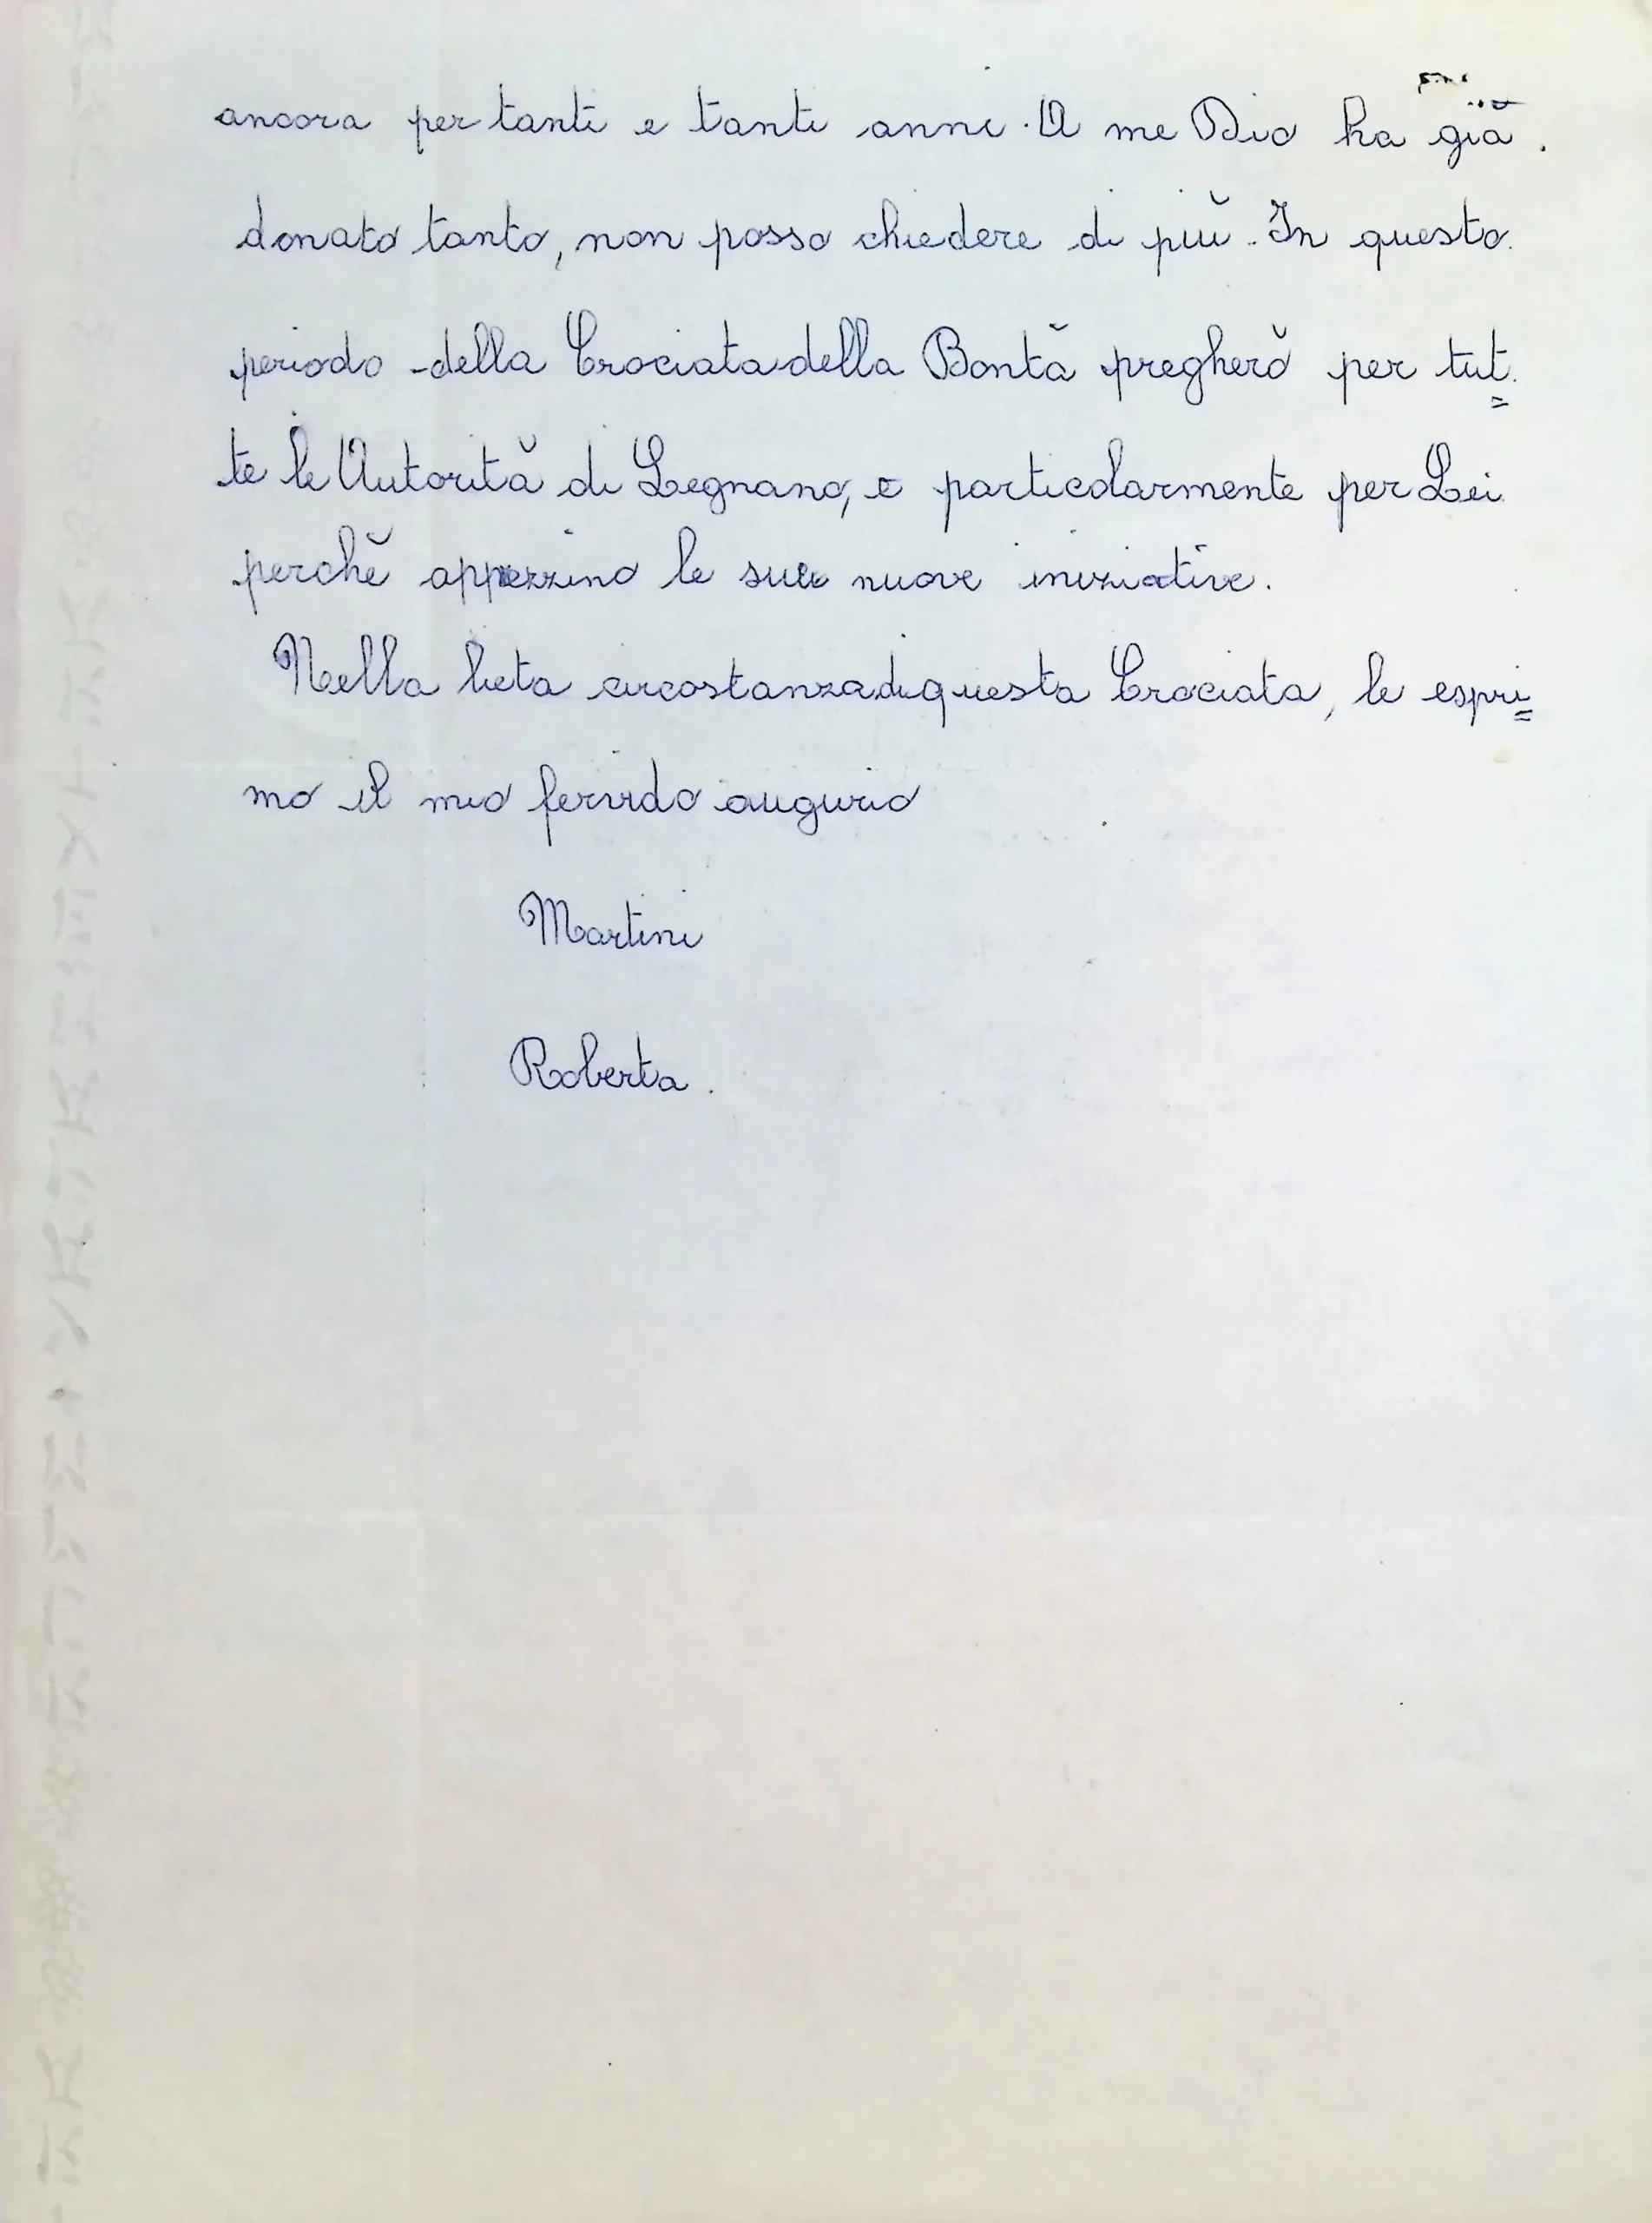 ancora per tanti e tanti anni. A me Dio ha già
donato tanto, non posso chiedere di più. In questo
periodo della Crociata della Bontà pregherò per tut=
te le Autorità di Legnano, e particolarmente per Lei
perchè apprezzino le sue nuove iniziative.
Nella lieta circostanza di questa Crociata, le espri=
mo il mio fervido augurio
Martini
Roberta.